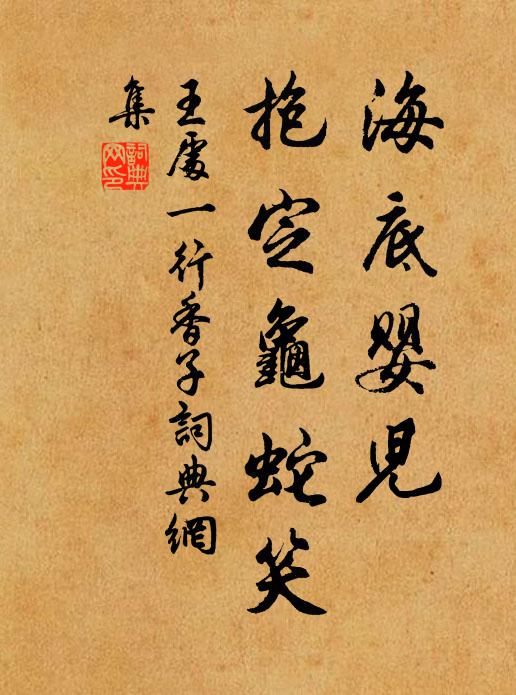 海底嬰兒
抱定龜蛇笑
王處一行香子詞典網
集
詞典
网印